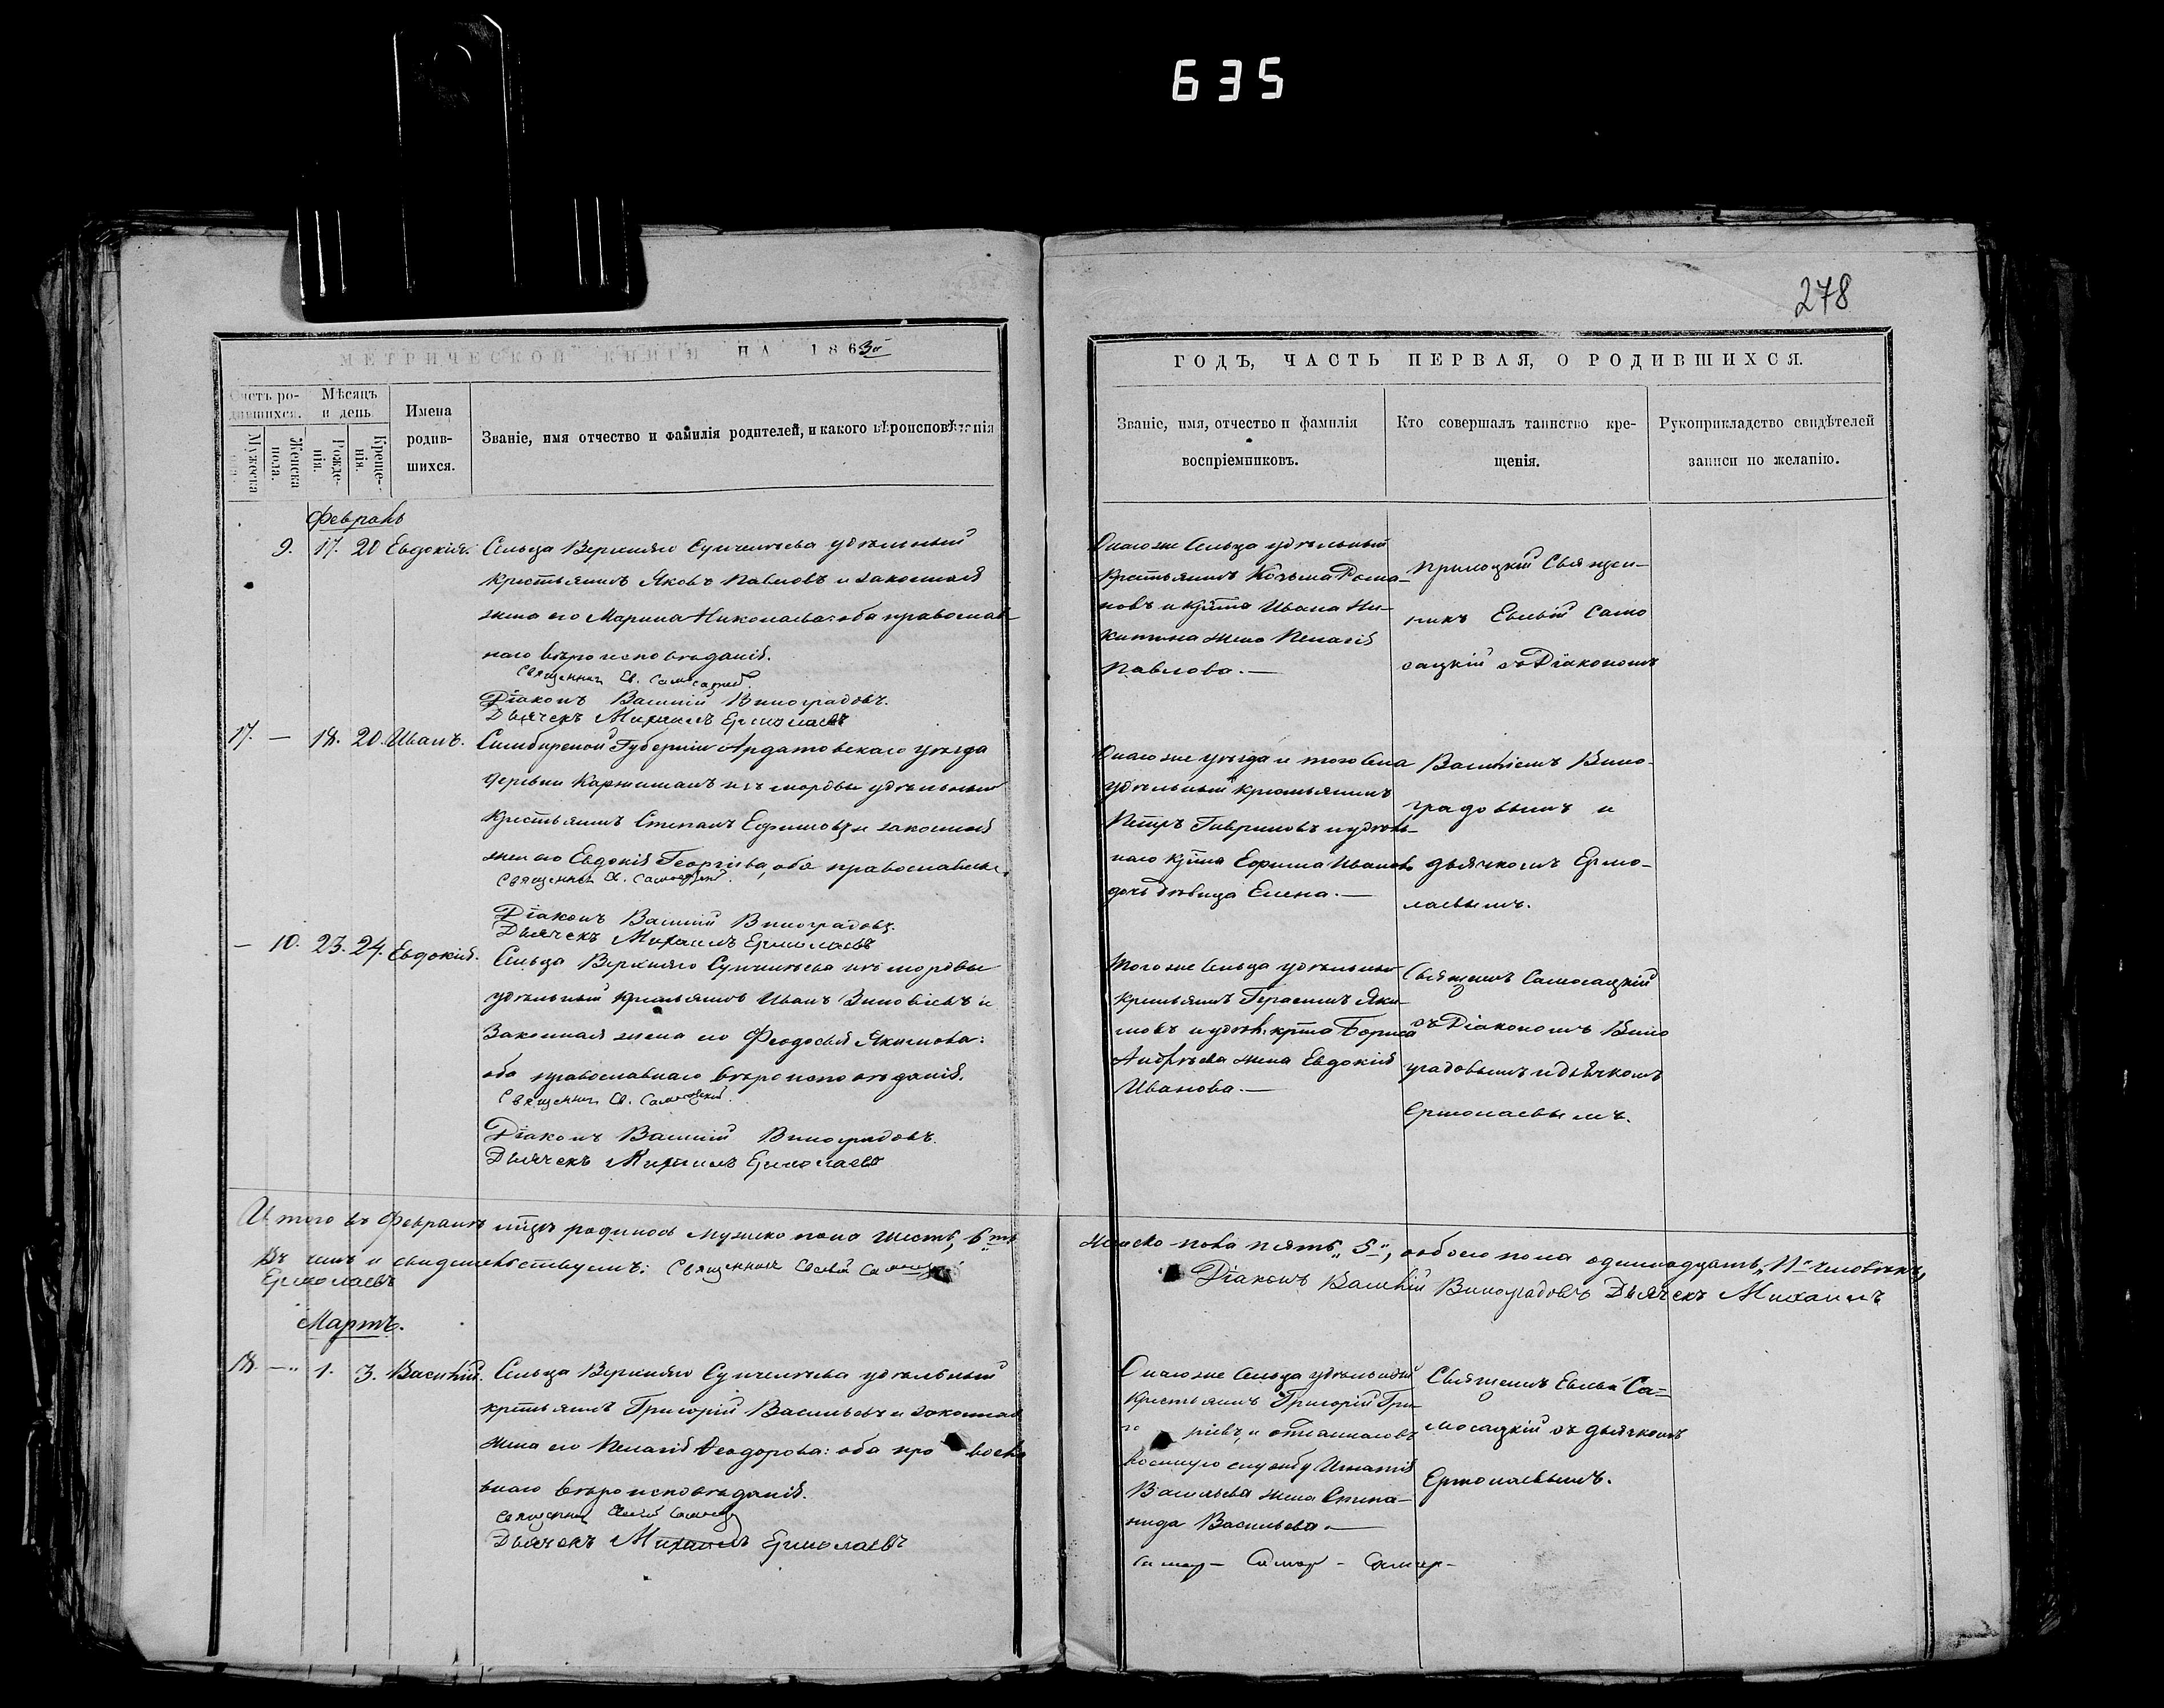 635
278
МЕТРИЧЕСКОЙ КНИГИ НА 1863й
ГОДЪ, ЧАСТЬ ПЕРВАЯ, О РОДИВШИХСЯ.
Счетъ ро-
дившихся.
Мѣсяцъ
и день
Мужеска
пола.
Женска
пола.
Рожде-
нія.
Креще-
нія.
Имена
родив-
шихся.
Званіе, имя отчество и фамилія родителей, и какого вѣроисповѣданія
Званіе, имя, отчество и фамилія
воспріемниковъ.
Кто совершалъ таинство кре-
щенія.
Рукоприкладство свидѣтелей
записи по желанію.
Февраль
9. 17. 20 Евдокія. Сельца Верхняго Сунгелѣева удѣльный
крестьянинъ Яковъ Павловъ и законная
жена его Марина Николаева: оба православ-
наго вѣроисповѣданія.
Священникъ Ев. Самосацкій.
Діаконъ Василій Виноградовъ.
Дьячекъ Михаилъ Ермолаевъ
Онаго же сельца удѣльный
крестьянинъ Козьма Рома-
новъ и крт̃на Ивана Ни-
китина жена Пелагія
Павлова. —
Приходскій Священ-
никъ Евлій Само
сацкій съ Діакономъ
17. — 18. 20. Иванъ. Симбирской Губерніи Ардатовскаго уѣзда
деревни Каржиманъ изъ мордвы удѣльный
крестьянинъ Степанъ Ефимовъ и законная
жена его Евдокія Георгіева, оба православные.
Священникъ Ев. Самосацкій.
Діаконъ Василій Виноградовъ.
Дьячекъ Михаилъ Ермолаевъ
Онаго же уѣзда и того села
удѣльный крестьянинъ
Петръ Гавриловъ и удѣль-
наго крт̃на Ефима Иванова
дочь дѣвица Елена. —
Василіемъ Вино-
градовымъ и
дьячкомъ Ермо-
лаевымъ.
— 10. 23. 24. Евдокія. Сельца Верхняго Сунгелѣева изъ мордвы
удѣльный крестьянинъ Иванъ Зиновіевъ и
законная жена его Феодосія Якимова:
оба православнаго вѣроисповѣданія.
Священникъ Ев. Самосацкій.
Діаконъ Василій Виноградовъ.
Дьячекъ Михаилъ Ермолаевъ
Того же сельца удѣльный
крестьянинъ Герасимъ Яки-
мовъ и удѣл. крт̃на Бориса
Андреѣва жена Евдокія
Иванова. —
Священникъ Самосацкій
съ Діакономъ Вино
градовымъ и дьячкомъ
Ермолаевымъ.
Итого въ Февралѣ мц̃ѣ родилось мужеско пола шесть, 6ть
женско пола пять „5“, обоего пола одиннадцать „11“ человѣкъ,
Въ чемъ и свидѣтельствуемъ: Священникъ Евлій
Діаконъ Василій Виноградовъ Дьячекъ Михаилъ
Ермолаевъ
Мартъ.
18. — 1. 3. Василій. Сельца Верхняго Сунгелѣева удѣльный
крестьянинъ Григорій Васильевъ и законная
жена его Пелагія Ѳеодорова: оба про восла
внаго вѣроисповѣданія.
Священникъ Евлій
Дьячекъ Михаилъ Ермолаевъ
Онаго же сельца удѣльный
крестьянинъ Григорій Гри
го ріевъ, и отданнаго въ
военную службу Игнатія
Васильева жена Степа-
нида Васильева. —
Священникъ Евлій Са-
мосацкій съ дьячкомъ
Ермолаевымъ.